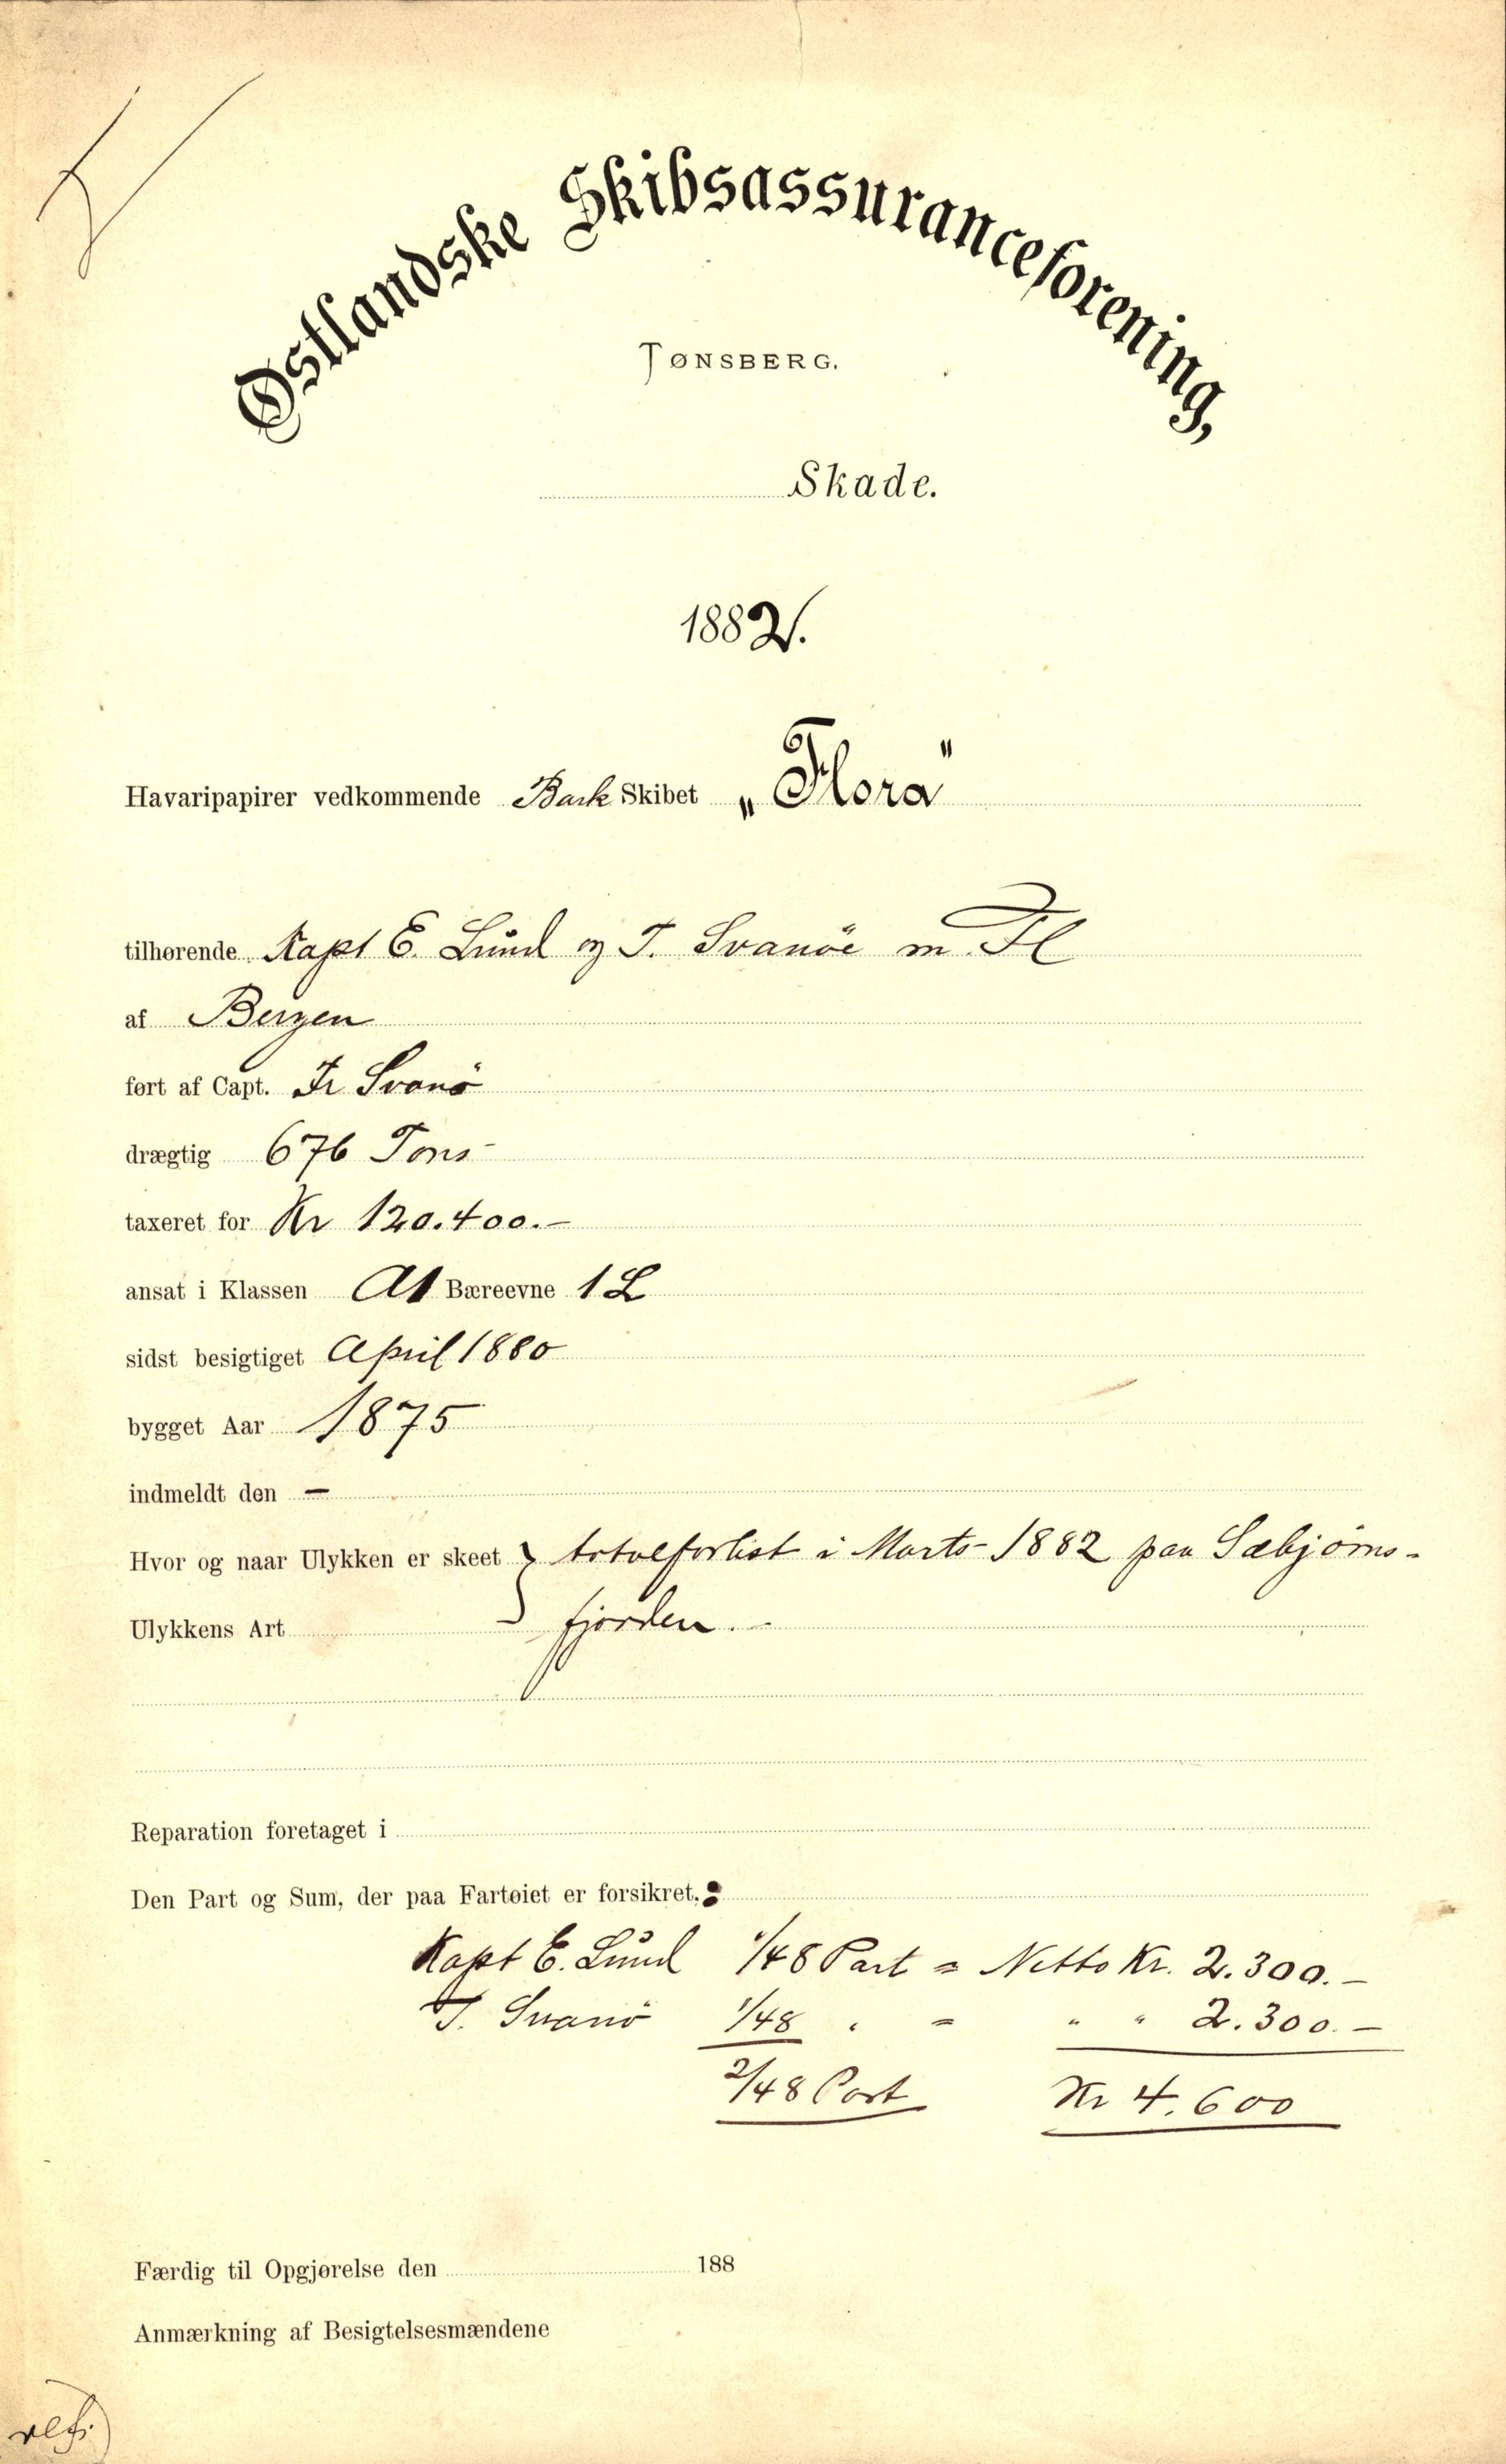 Østlandske Skibsassuranceforening,
TØNSBERG.
Skade.
1882.
Havaripapirer vedkommende Bark Skibet „Flora"
tilhørende Kapt E. Lund og T. Svanöe m. Fl
af Bergen
ført af Capt. Fr Svanö
drægtig 676 Tons
taxeret for Kr 120.400.-
ansat i Klassen A1 Bæreevne 1 L
sidst besigtiget April 1880
bygget Aar 1875
indmeldt den -
Hvor og naar Ulykken er skeet } totalforlist i Marts 1882 paa Sæbjörns-
Ulykkens Art fjorden.-
Reparation foretaget i
Den Part og Sum, der paa Fartøiet er forsikret. :
Kapt E. Lund 1/48 Part = Netto Kr. 2.300.-
T. Svanö 1/48 " = " " 2.300.-
2/48 Part Kr 4.600
Færdig til Opgjørelse den 188
Anmærkning af Besigtelsesmændene